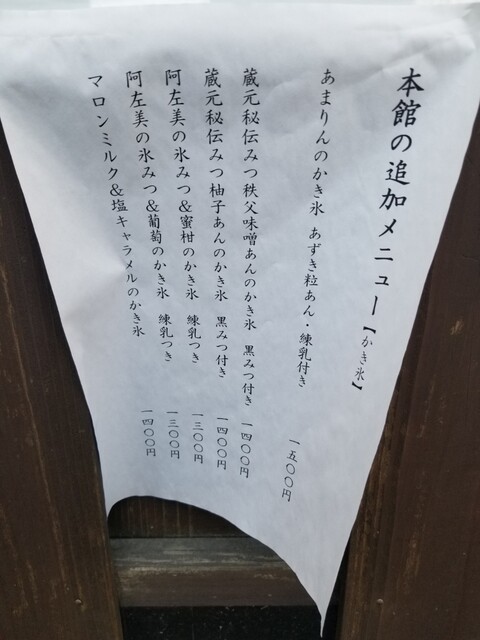 本館の追加メニュー【かき氷】
あまりんのかき氷 あずき粒あん・練乳付き 一五〇〇円
蔵元秘伝みつ秩父味噌あんのかき氷 黒みつ付き 一四〇〇円
蔵元秘伝みつ柚子あんのかき氷 黒みつ付き 一四〇〇円
阿左美の氷みつ&蜜柑のかき氷 練乳つき 一三〇〇円
阿左美の氷みつ&葡萄のかき氷 練乳つき 一三〇〇円
マロンミルク&塩キャラメルのかき氷 一四〇〇円